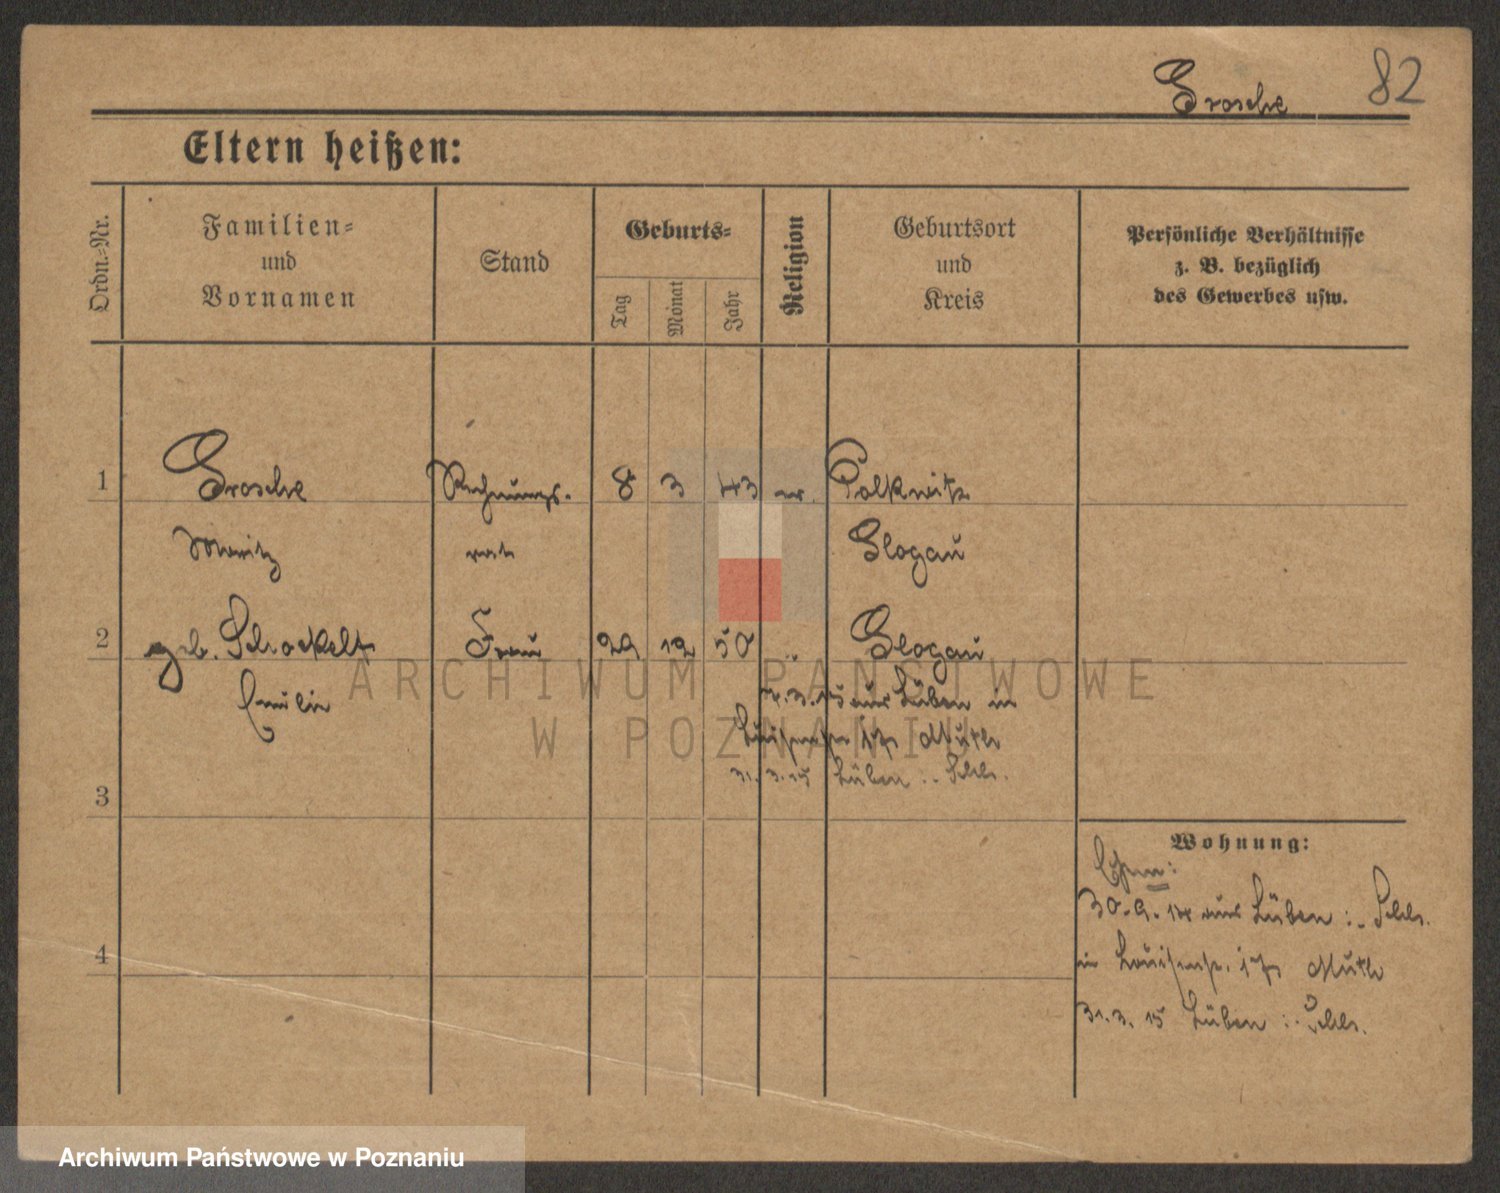 Grosche 82
Eltern heißen:
Ordn.-Nr.
Familien-
und
Vornamen
Stand
Geburts-
Tag
Monat
Jahr
Religion
Geburtsort
und
Kreis
Persönliche Verhältnisse
z. B. bezüglich
des Gewerbes usw.
1 Grosche Rechnungs- 8 3 43 ev. Polkwitz
Moritz rat Glogau
2 geb. Frau 29 12 50 " Glogau
Emilie
15 aus Lüben in
Louisenstr. Mutter
31.3.15 Lüben :. Schls.
3
Wohnung:
30.9.14 aus Lüben :. Schls.
in Louisenstr. Mutter
4
31.3.15 Lüben :. Schls.
ARCHIWUM PAŃSTWOWE
W POZNANIU
Archiwum Państwowe w Poznaniu